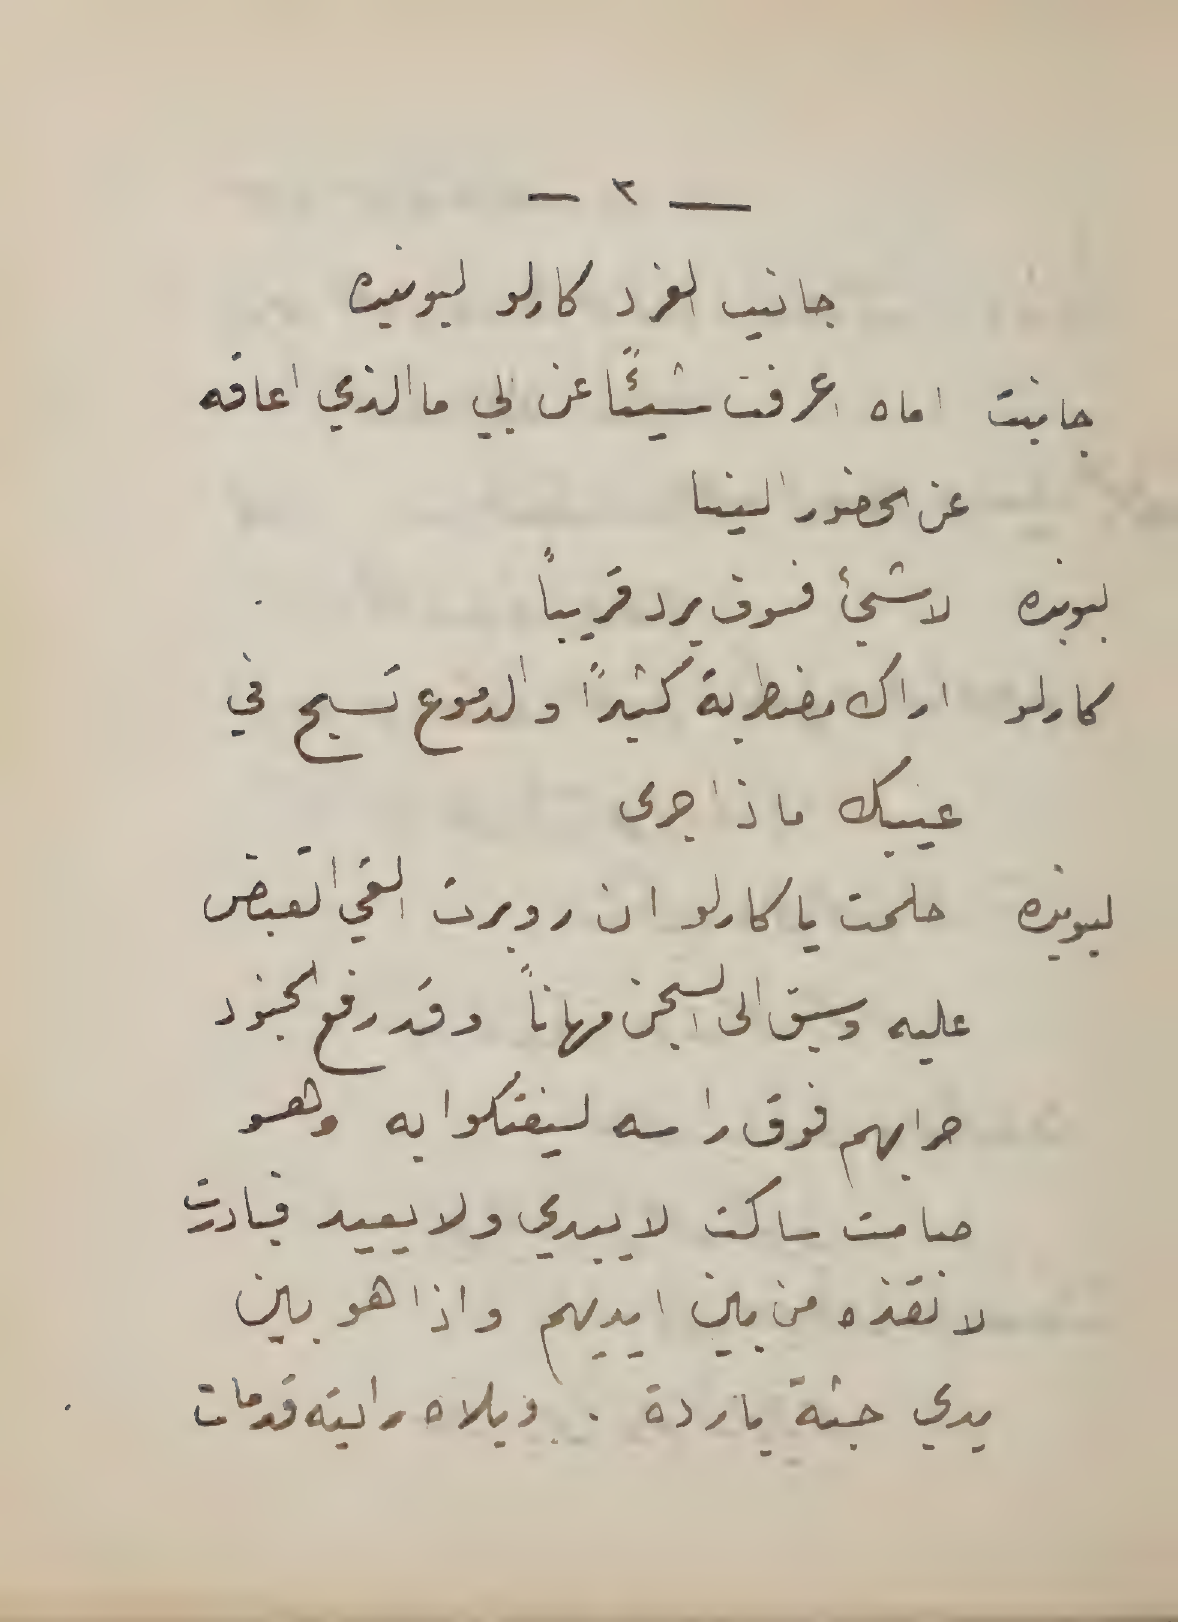 — ٣ —
جانيت الفرد كارلو ليونيده
جانيت اماه اعرفت شيئًا عن ابي ما الذي اعاقه
عن الحضور الينا
ليونيده لا شيئ فسوف يرد قريباً
كارلو اراك مضطربة كثيرًا والدموع تسيح في
عينيك ماذا جرى
ليونيده حلمت يا كارلو ان روبرت القي القبض
عليه وسيق الى السجن مهاناً وقد رفع الجنود
حرابهم فوق راسه ليفتكوا به وهو
صامت ساكت لا يبدي ولا يعيد فبادرت
لانقذه من بين ايديهم واذا هو بين
يدي جثة باردة . ويلاه رايته قد مات